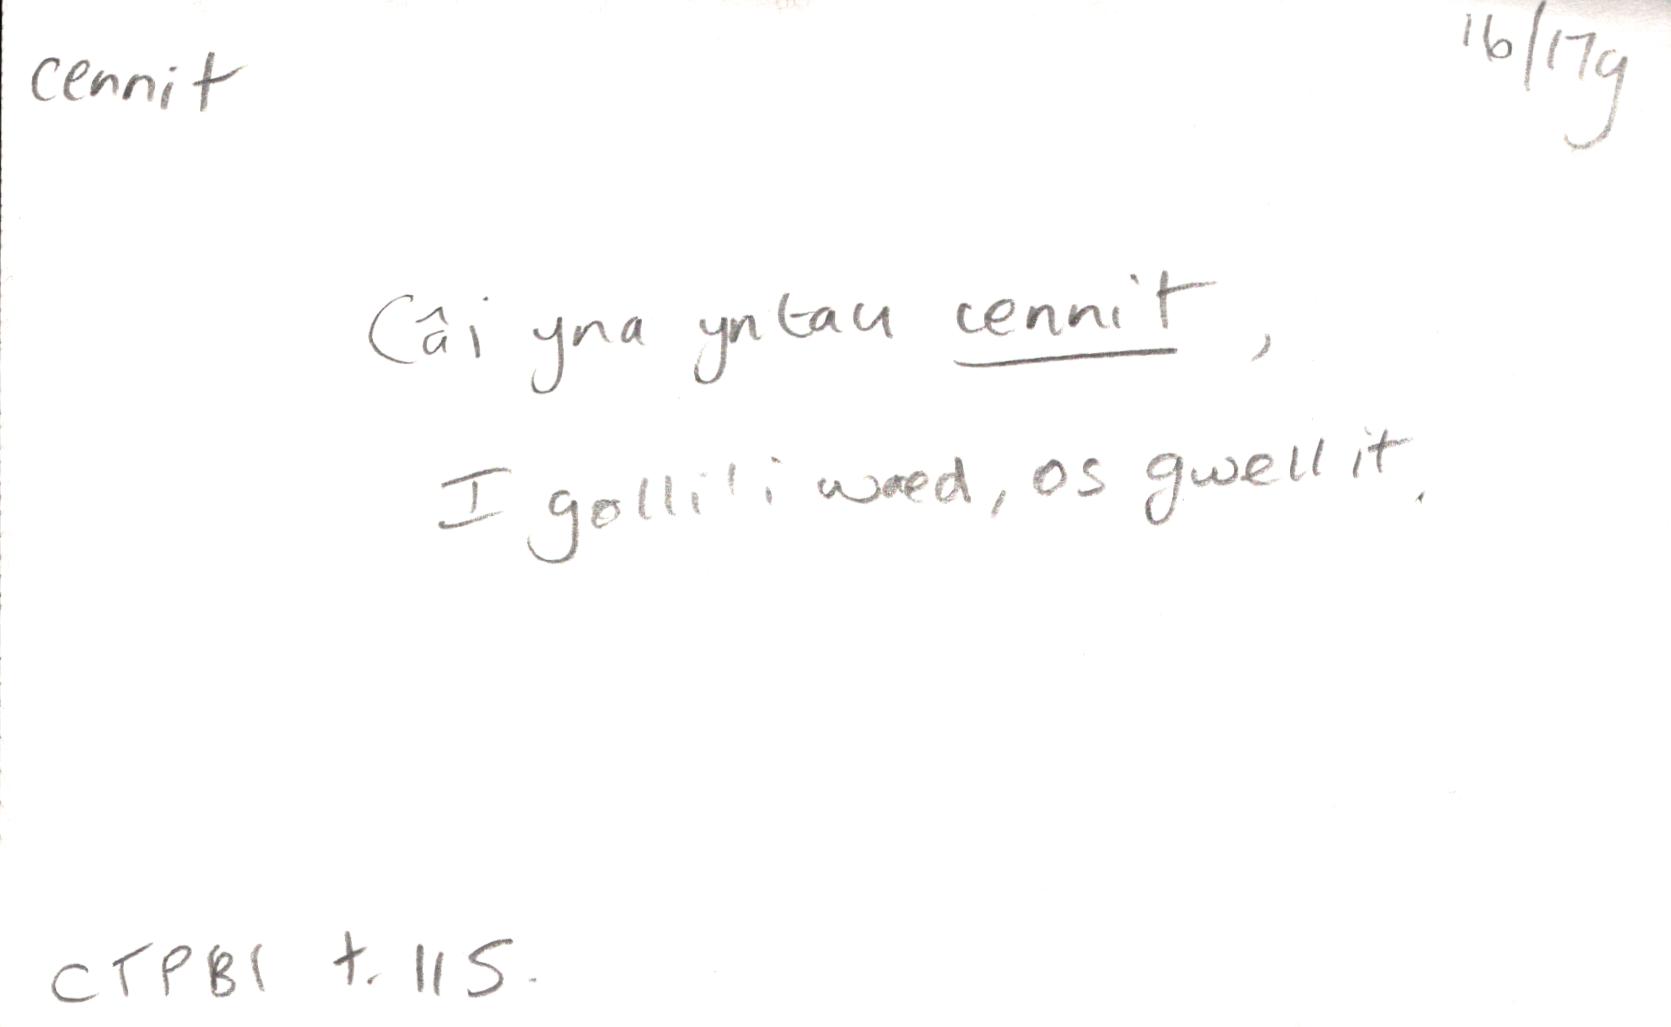 cennit
16/17g
Câi yna yntau cennit,
I golli'i waed, os gwell it.
CTPB1 t. 115.